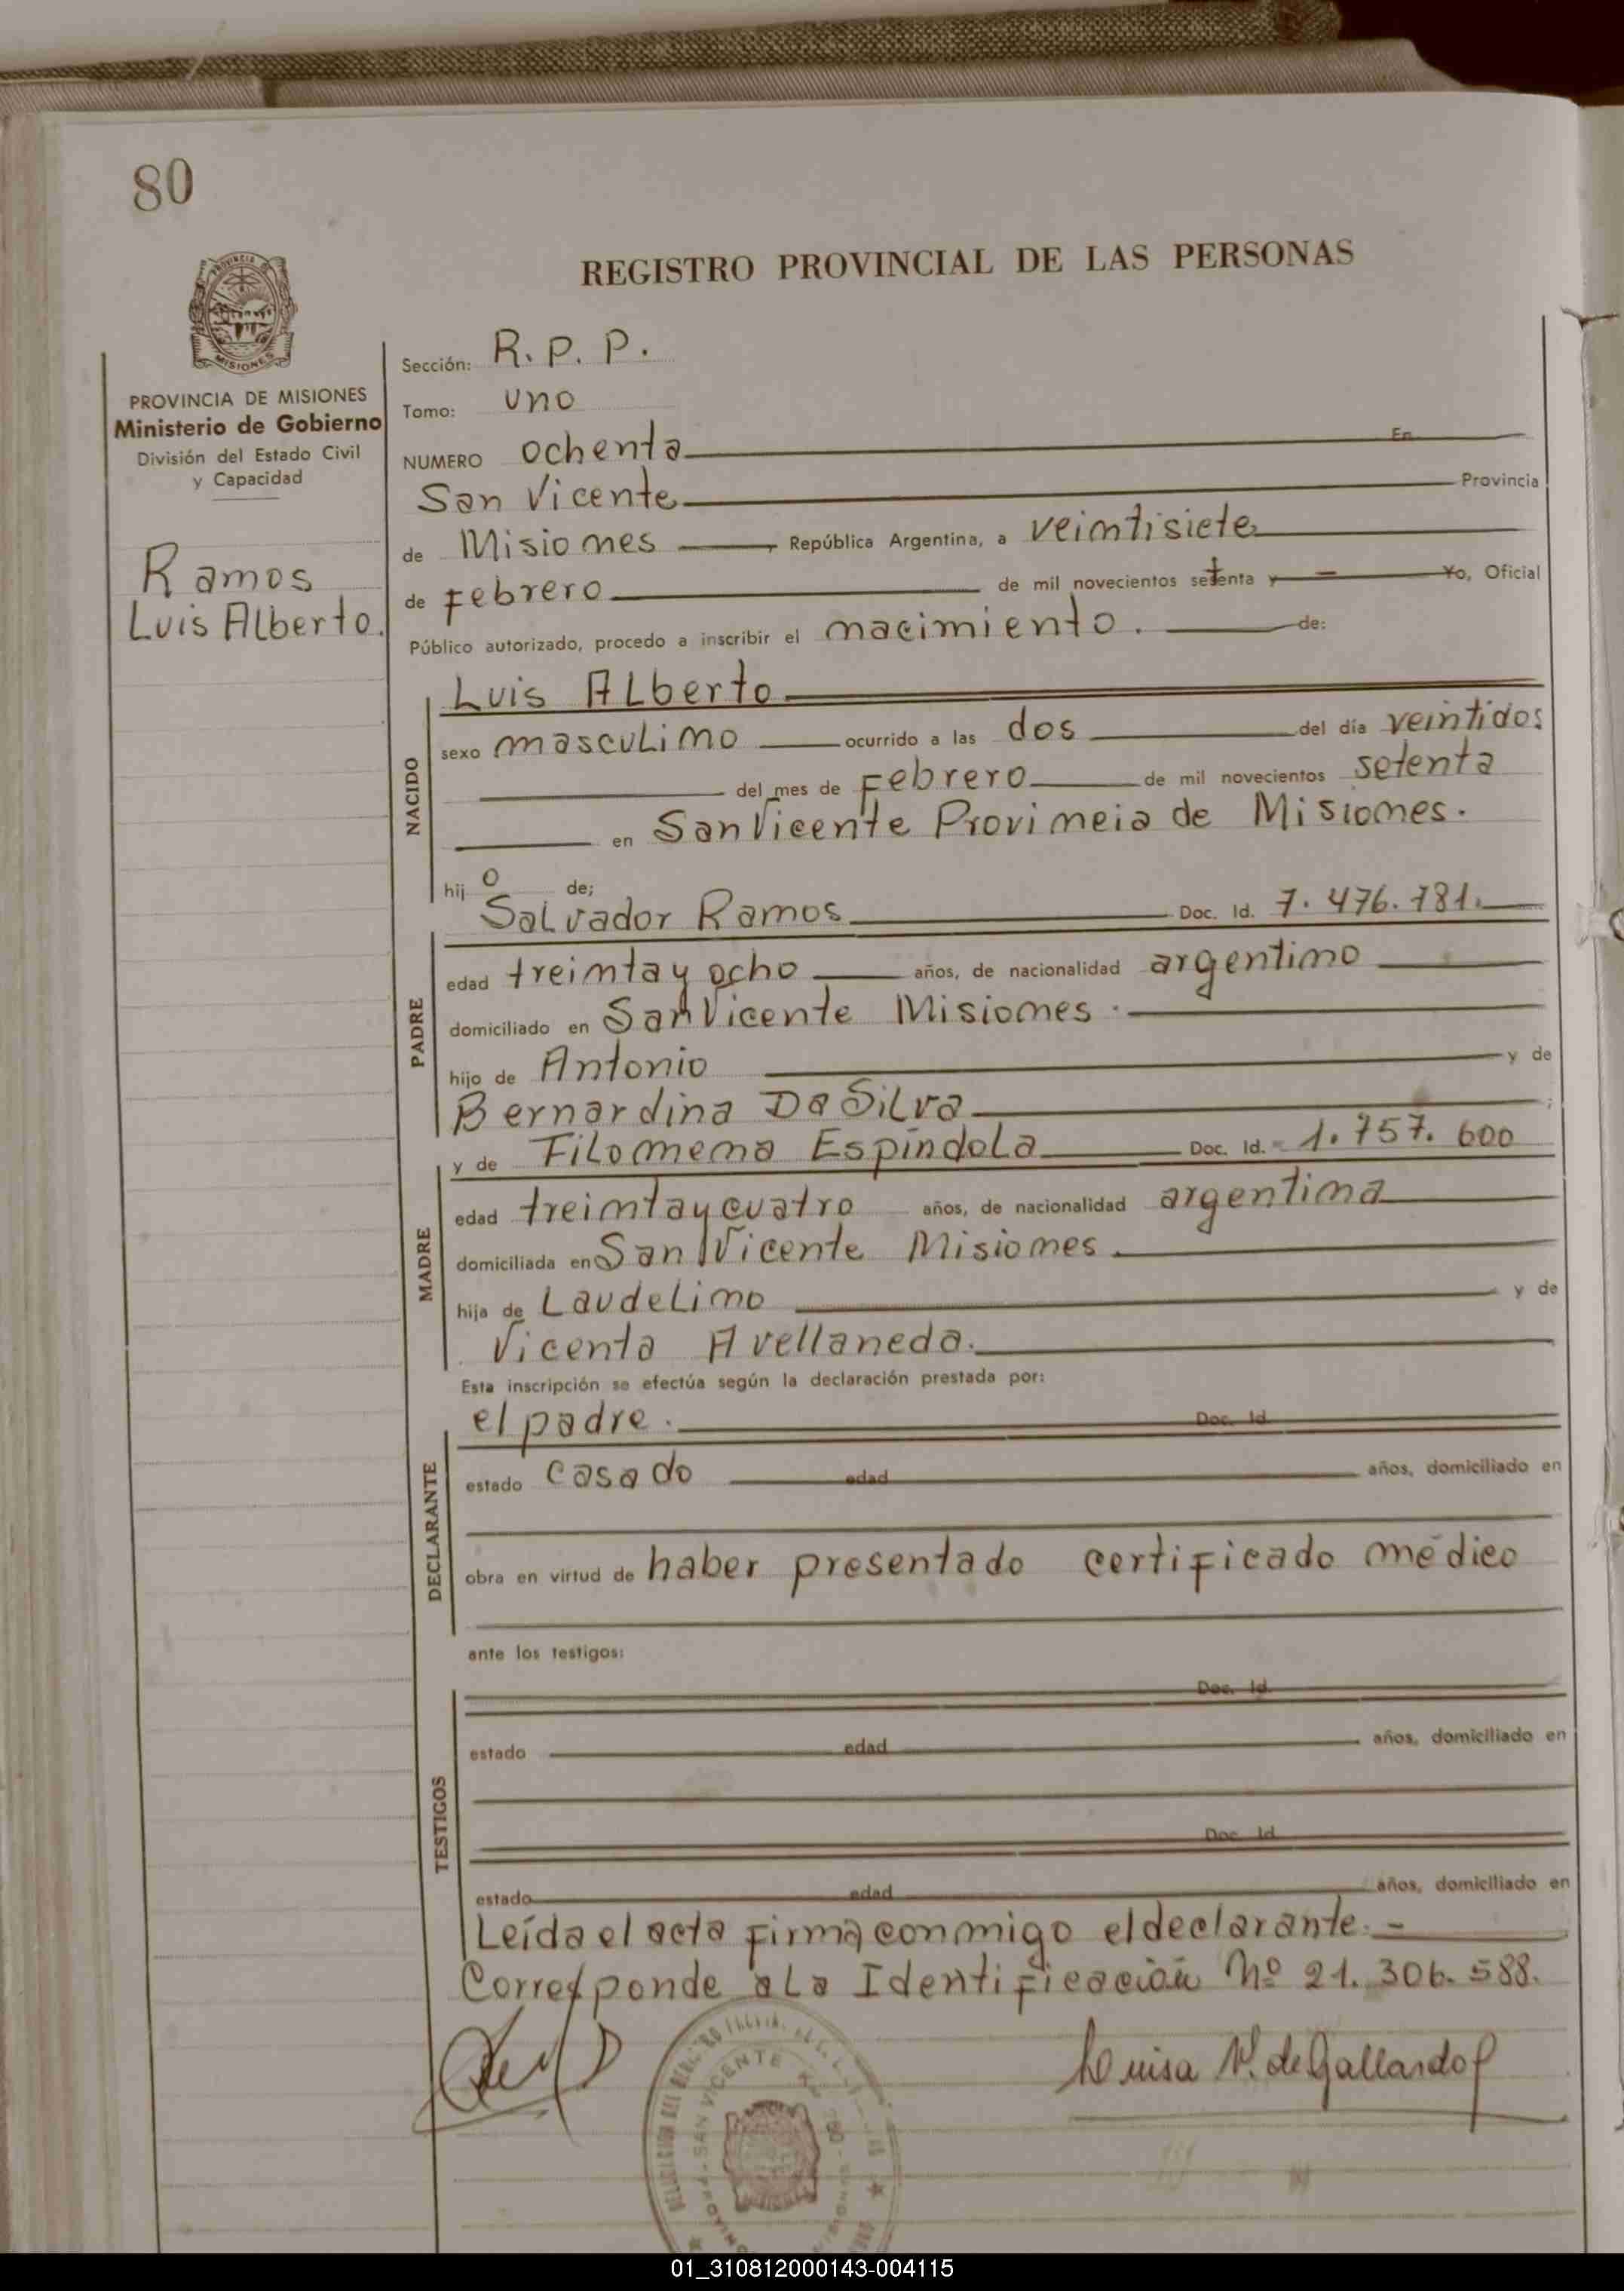 80
REGISTRO PROVINCIAL DE LAS PERSONAS
PROVINCIA
MISIONES
PROVINCIA DE MISIONES
Ministerio de Gobierno
División del Estado Civil
y Capacidad
Ramos
Luis Alberto.
Sección: R. P. P.
Tomo: uno
NUMERO ochenta En
San Vicente Provincia
de Misiones República Argentina, a veintisiete
de Febrero de mil novecientos setenta y - Yo, Oficial
Público autorizado, procedo a inscribir el nacimiento. de:
NACIDO
Luis Alberto
sexo masculino ocurrido a las dos del día veintidos
del mes de Febrero de mil novecientos setenta
en San Vicente Provincia de Misiones.
hij o de;
PADRE
Salvador Ramos Doc. Id. 7. 476. 781.
edad treinta y ocho años, de nacionalidad argentino
domiciliado en San Vicente Misiones.
hijo de Antonio y de
Bernardina Da Silva ;
MADRE
y de Filomena Espíndola Doc. Id. 1. 757. 600
edad treinta y cuatro años, de nacionalidad argentina
domiciliada en San Vicente Misiones.
hija de Laudelino y de
Vicenta Avellaneda.
Esta inscripción se efectúa según la declaración prestada por:
DECLARANTE
el padre. Doc. Id.
estado casado edad años, domiciliado en
obra en virtud de haber presentado certificado médico
ante los testigos:
TESTIGOS
Doc. Id.
estado edad años, domiciliado en
Doc. Id.
estado edad años, domiciliado en
Leída el acta firma conmigo el declarante. -
Corresponde a La Identificación Nº 21. 306. 588.
Luisa V. de Gallardo
SAN VICENTE
01_310812000143-004115